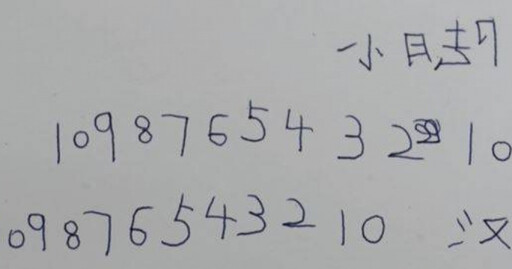 一小日
10 9 8 7 6 5 4 3 2 1 0
0 9 8 7 6 5 4 3 2 1 0 汉